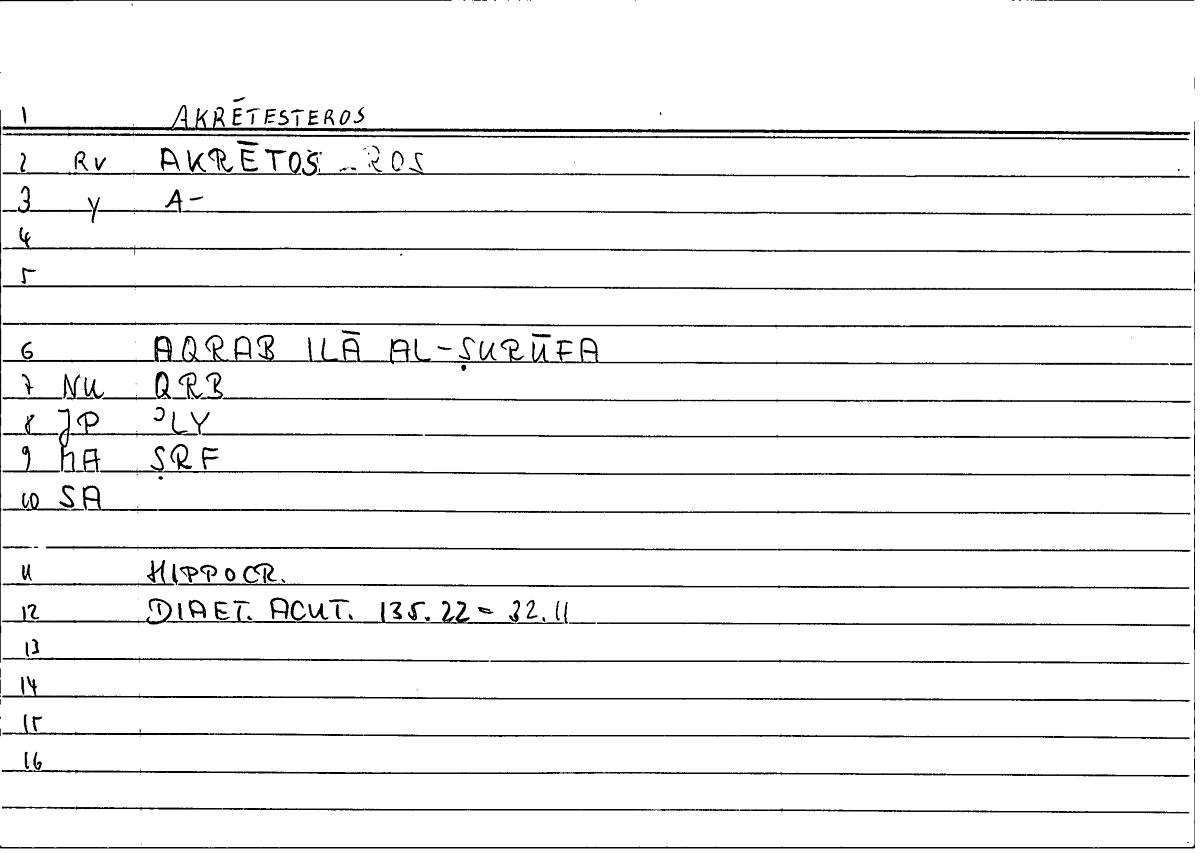 1 AKRĒTESTEROS
2 RV AKRĒTOS -ROS
3 Y A-
4
5
6 AQRAB ILĀ AL-ṢURŪFA
7 NU QRB
8 JP ʾLY
9 hA ṢRF
10 SA
11 HIPPOCR.
12 DIAET. ACUT. 135.22 = 32.11
13
14
15
16